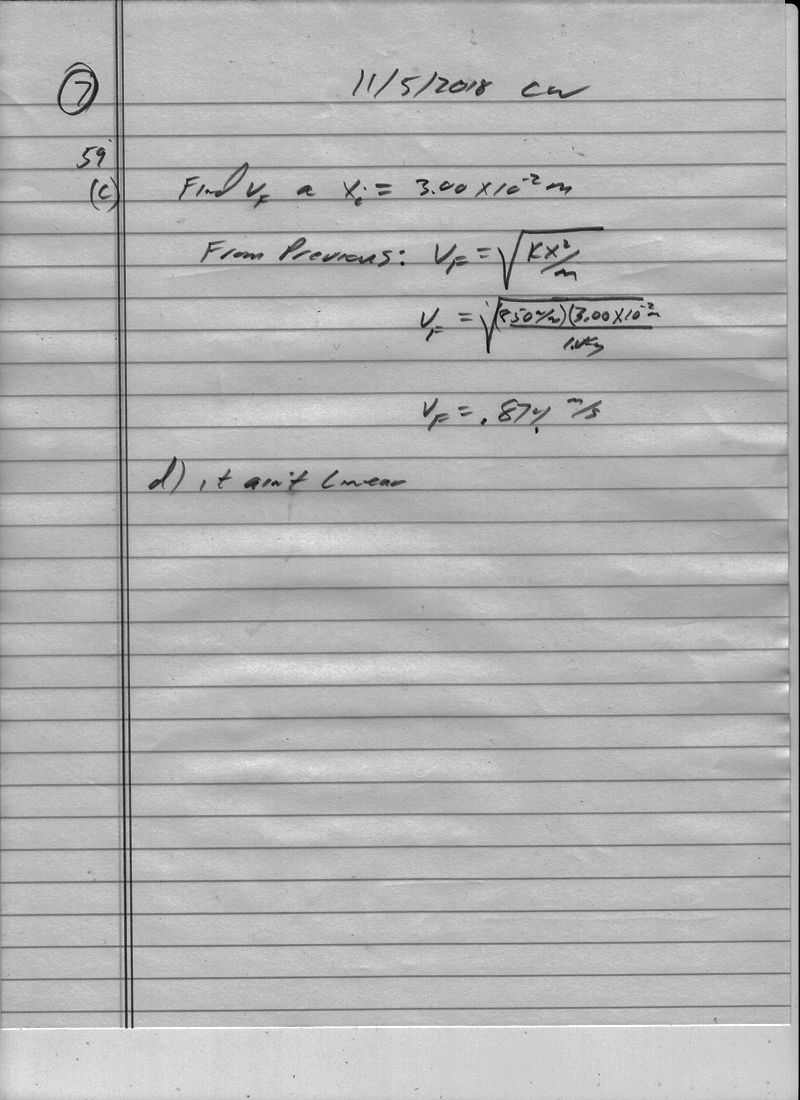 7
11/5/2018 CW
59
(c) Find VF a xi = 3.00 x10-2 m
From Previous: VF = √Kx²/m
VF = √(850 N/m)(3.00 X10-2 m
VF = .874 m/s
d) it ain't Linear